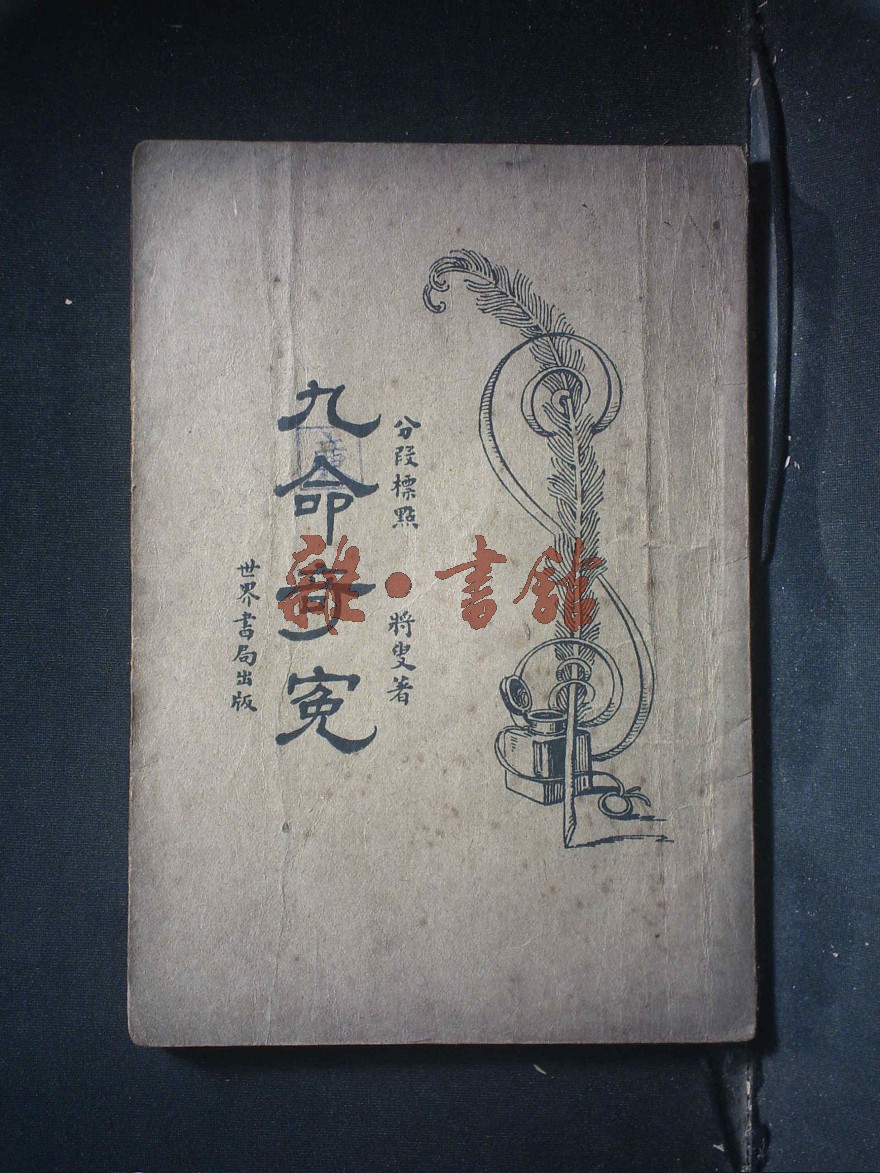 分段標點
將叟著
九命奇冤
世界書局出版
雜·書館